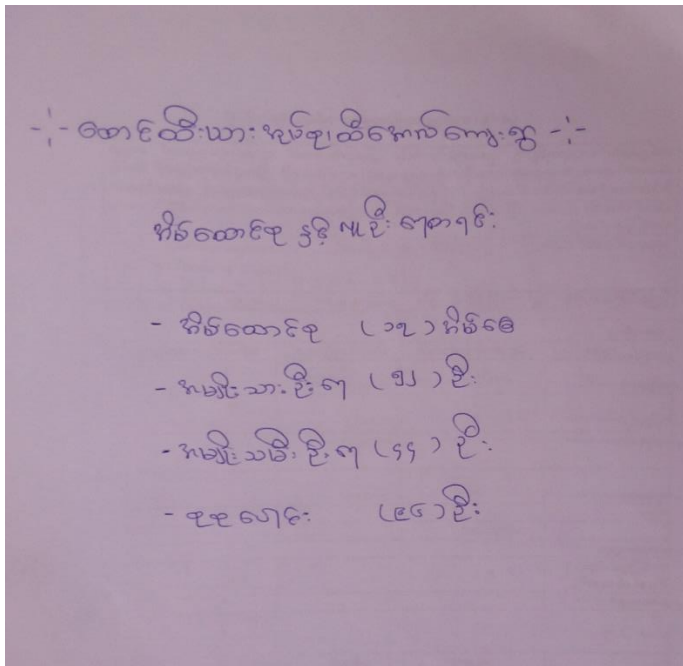 -:- ထောင်ထီးယား အုပ်စု၊ ထီအောလ်ကျေးရွာ -:-
အိမ်ထောင်စု နှင့် လူဦးရေစာရင်း
- အိမ်ထောင်စု (၁၃) အိမ်ခြေ
- အမျိုးသားဦးရေ (၅၂) ဦး
- အမျိုးသမီးဦးရေ (၄၄) ဦး
- စုစုပေါင်း (၉၆) ဦး